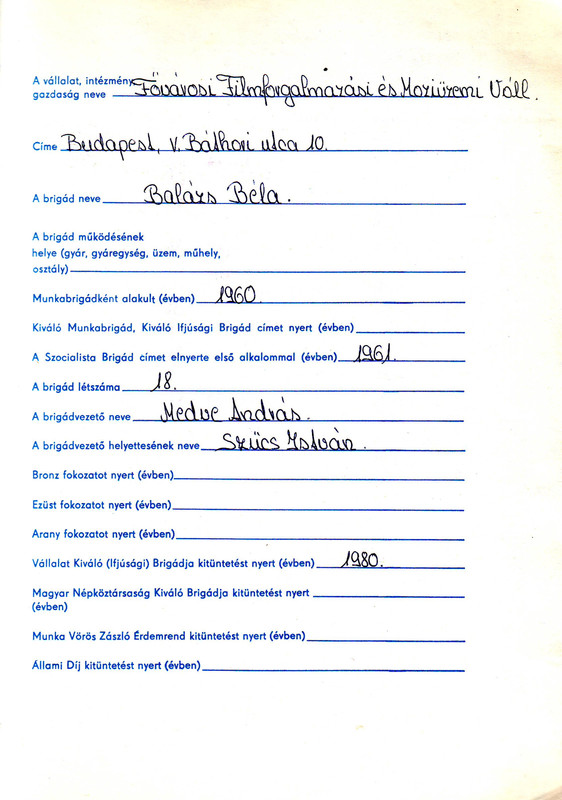 A vállalat, intézmény
gazdaság neve Fővárosi Filmforgalmazási és Moziüzemi Váll.
Címe Budapest, V. Báthori utca 10.
A brigád neve Balázs Béla.
A brigád működésének
helye (gyár, gyáregység, üzem, műhely,
osztály)
Munkabrigádként alakult (évben) 1960.
Kiváló Munkabrigád, Kiváló Ifjúsági Brigád címet nyert (évben)
A Szocialista Brigád címet elnyerte első alkalommal (évben) 1961.
A brigád létszáma 18.
A brigádvezető neve Medve András.
A brigádvezető helyettesének neve Szűcs István.
Bronz fokozatot nyert (évben)
Ezüst fokozatot nyert (évben)
Arany fokozatot nyert (évben)
Vállalat Kiváló (Ifjúsági) Brigádja kitüntetést nyert (évben) 1980.
Magyar Népköztársaság Kiváló Brigádja kitüntetést nyert
(évben)
Munka Vörös Zászló Érdemrend kitüntetést nyert (évben)
Állami Díj kitüntetést nyert (évben)